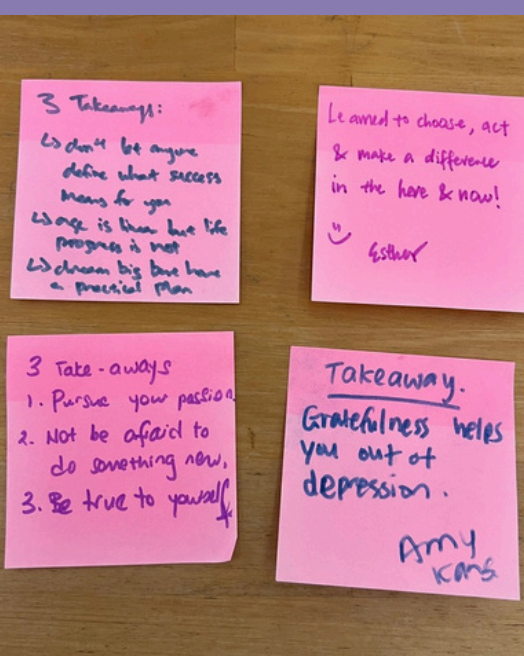 3 Takeaways:
↳ don't let anyone
define what success
means for you
↳ age is linear but life
progress is not
↳ dream big but have
a practical plan
Learned to choose, act
& make a difference
in the here & now!
Esther
3 Take-aways
1. Pursue your passion
2. Not be afraid to
do something new.
3. Be true to yourself
Takeaway.
Gratefulness helps
you out of
depression.
Amy
Kang